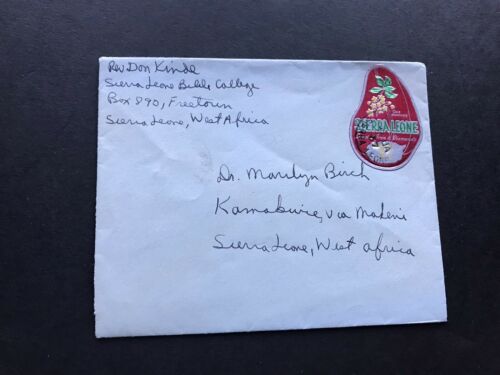 Rev Don Kinde
Sierra Leone Bible College
Box 890, Freetown
Sierra Leone, West Africa
SIERRA LEONE
Dr. Marilyn Birch
Kamakwie, via Makeni
Sierra Leone, West Africa